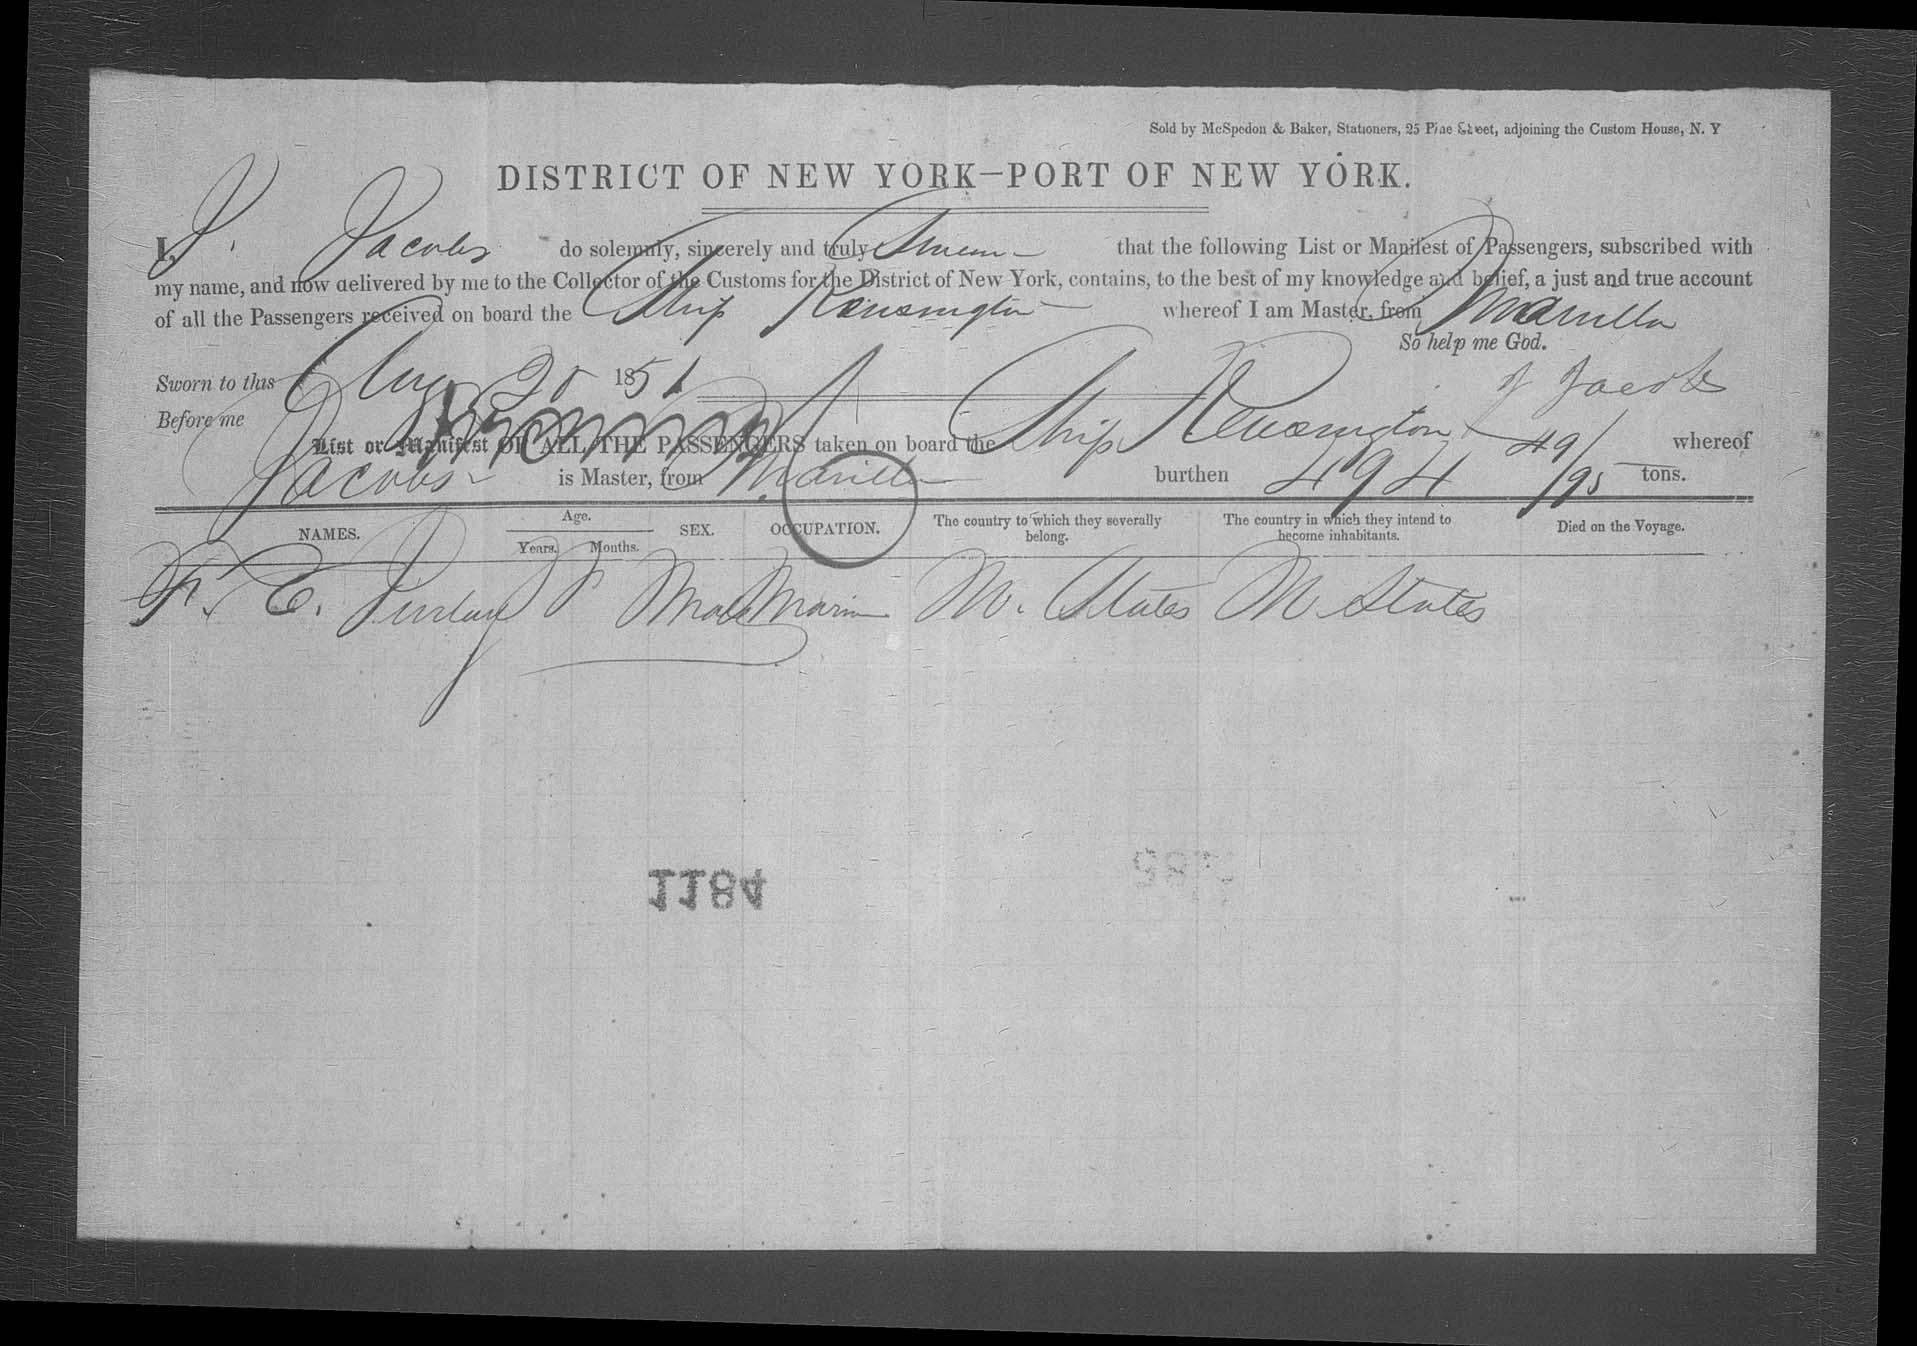 Sold by McSpedon & Baker, Stationers, 25 Pine Street, adjoining the Custom House, N. Y
DISTRICT OF NEW YORK—PORT OF NEW YORK.
I, J. Jacobs do solemnly, sincerely and truly Swear that the following List or Manifest of Passengers, subscribed with
my name, and now delivered by me to the Collector of the Customs for the District of New York, contains, to the best of my knowledge and belief, a just and true account
of all the Passengers received on board the Ship Kensington whereof I am Master, from Manilla
So help me God.
Sworn to this Aug 20 1851
J Jacobs
Before me
List or Manifest OF ALL THE PASSENGERS taken on board the Ship Kensington whereof
Jacobs is Master, from Manilla burthen 494 49/95 tons.
NAMES. Age. Years. Months. SEX. OCCUPATION. The country to which they severally belong. The country in which they intend to become inhabitants. Died on the Voyage.
F. E. Male Marin U. States U States
1184